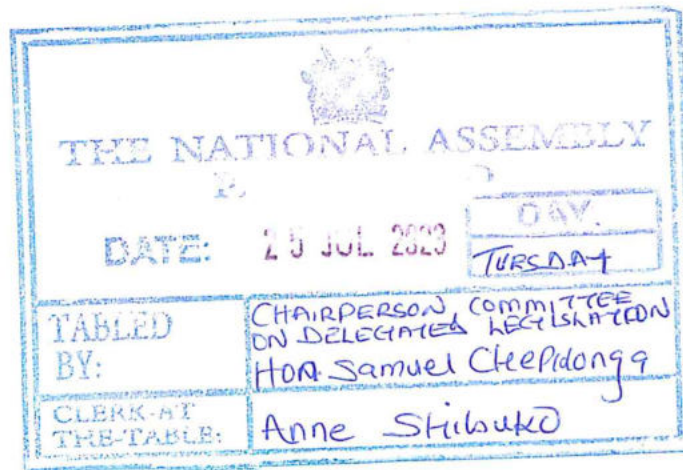 THE NATIONAL ASSEMBLY
DATE: 25 JUL 2023
DAY.
TUESDAY
TABLED BY:
CHAIRPERSON COMMITTEE
ON DELEGATED LEGISLATION
HON Samuel Chepkonga
CLERK-AT
THE-TABLE:
Anne Shibuko